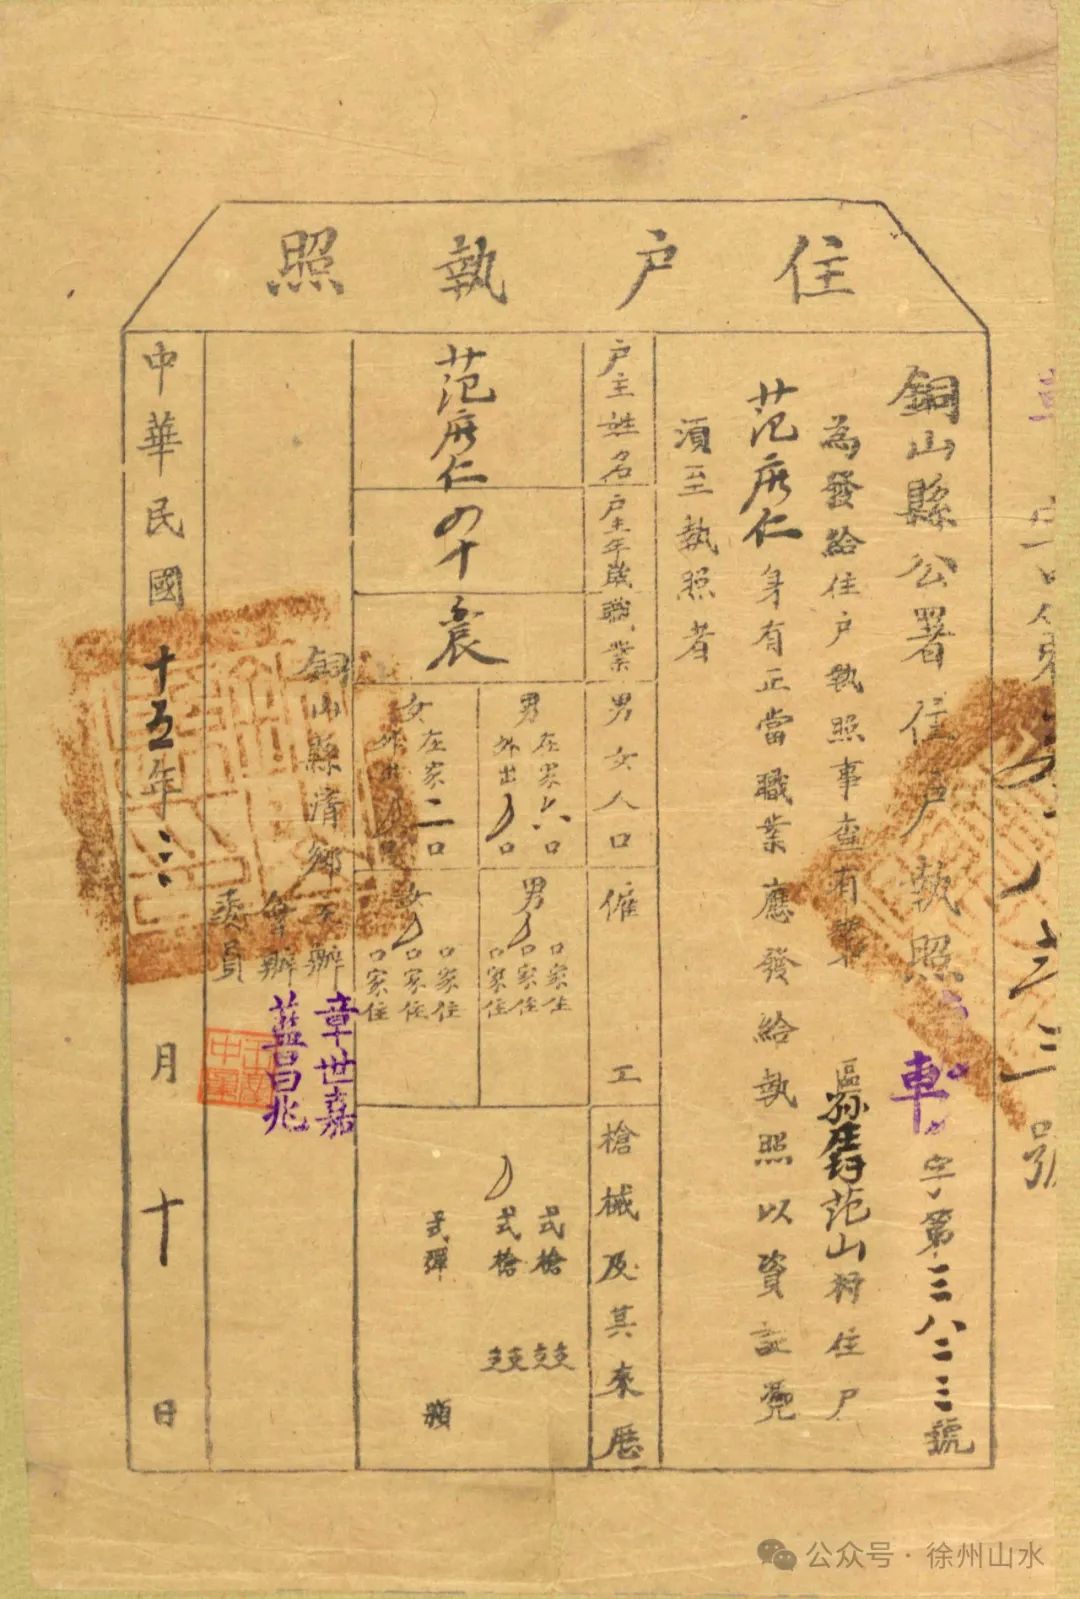 住戶執照
銅山縣公署住戶執照車字第三八二三號
為發給住戶執照事查有
范山村住戶
范
仁身有正當職業應發給執照以資証凭
須至執照者
戶主姓名
戶主年歲
職業
男女人口
僱工
槍械及其來歷
范
仁
四十
農
男
在家六口
外出口
女
在家二口
外出口
男
口家住
口家住
口家住
女
口家住
口家住
口家住
式槍
式槍
式彈
支
支
顆
銅山縣清鄉
辦
章世嘉
會辦
藍昌兆
委員
中華民國十五年三月十日
號
公众号·徐州山水